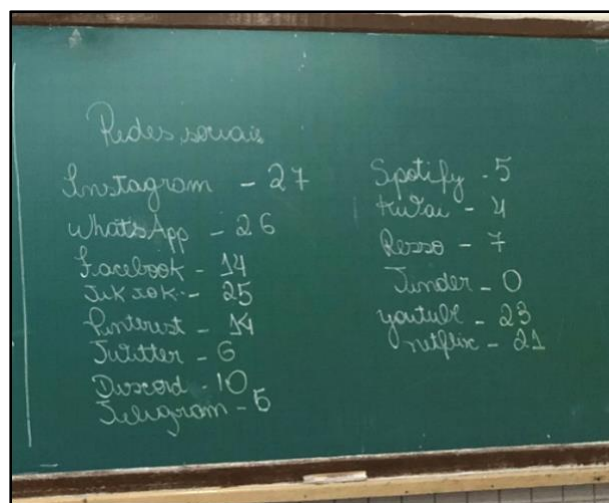 Redes sociais
Instagram - 27
WhatsApp - 26
Facebook - 14
TikTok - 25
Pinterest - 14
Twitter - 6
Discord - 10
Telegram - 5
Spotify - 5
Kwai - 4
Resso - 7
Tinder - 0
youtube - 23
netflix - 21